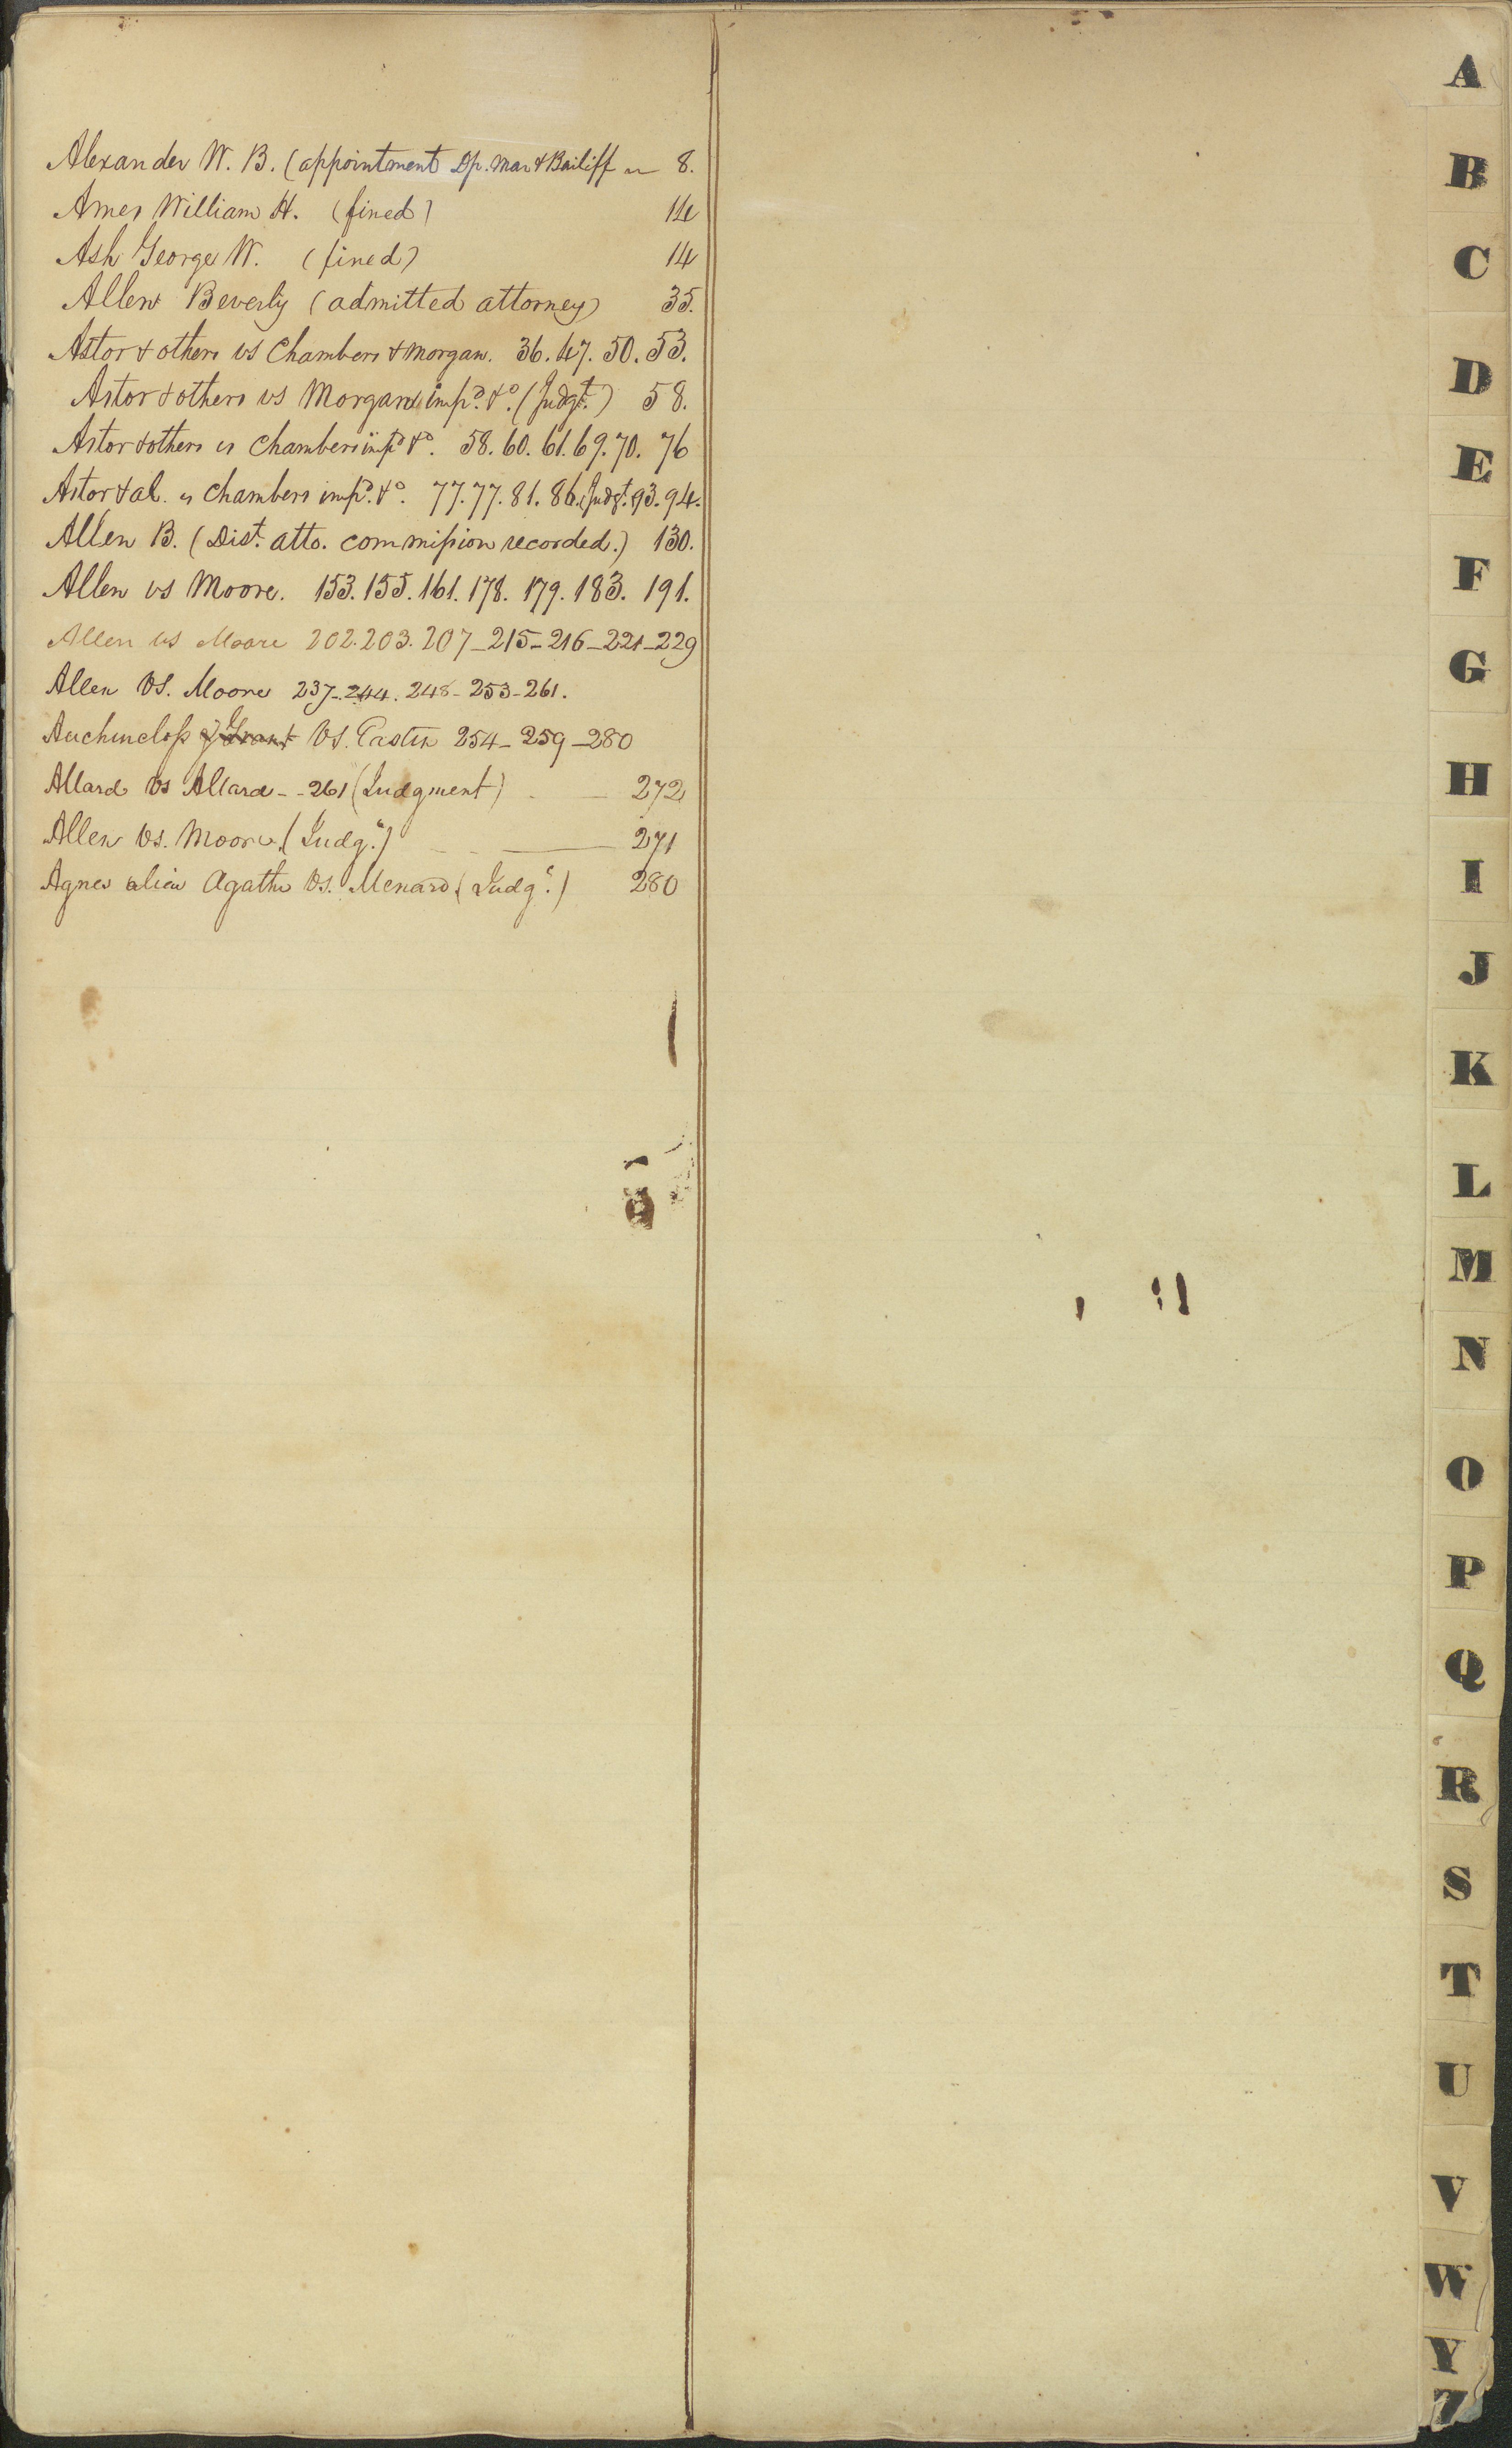 Alexander W. B. (appointment Dp. Mar & Bailiff 8.
Ames William H. (fined) 14
Ash George W. (fined) 14
Allen Beverly (admitted attorney) 35.
Astor & others vs Chambers & Morgan. 36. 47. 50. 53.
Astor & others vs Morgan imp^d. &^c. (Judg^t.) 58.
Astor & others vs Chambers imp^d &^c. 58. 60. 61. 69. 70. 76
Astor & al. vs Chambers imp^d. &^c. 77. 77. 81. 86. (Judg^t. 93. 94.
Allen B. (Dist. atto. commission recorded.) 130.
Allen vs Moore. 153. 155. 161. 178. 179. 183. 191.
Allen vs Moore 202. 203. 207_215_216_221_229
Allen Vs. Moore 237_244. 248_253_261.
Auchincloss & Grant Vs. Easten 254_259_280
Allard Vs Allard - - 261 (Judgment) 272
Allen Vs. Moore (Judg^t.) 271
Agnes alias Agathe Vs. Menard (Judg^t.) 280
A
B
C
D
E
F
G
H
I
J
K
L
M
N
O
P
Q
R
S
T
U
V
W
Y
Z